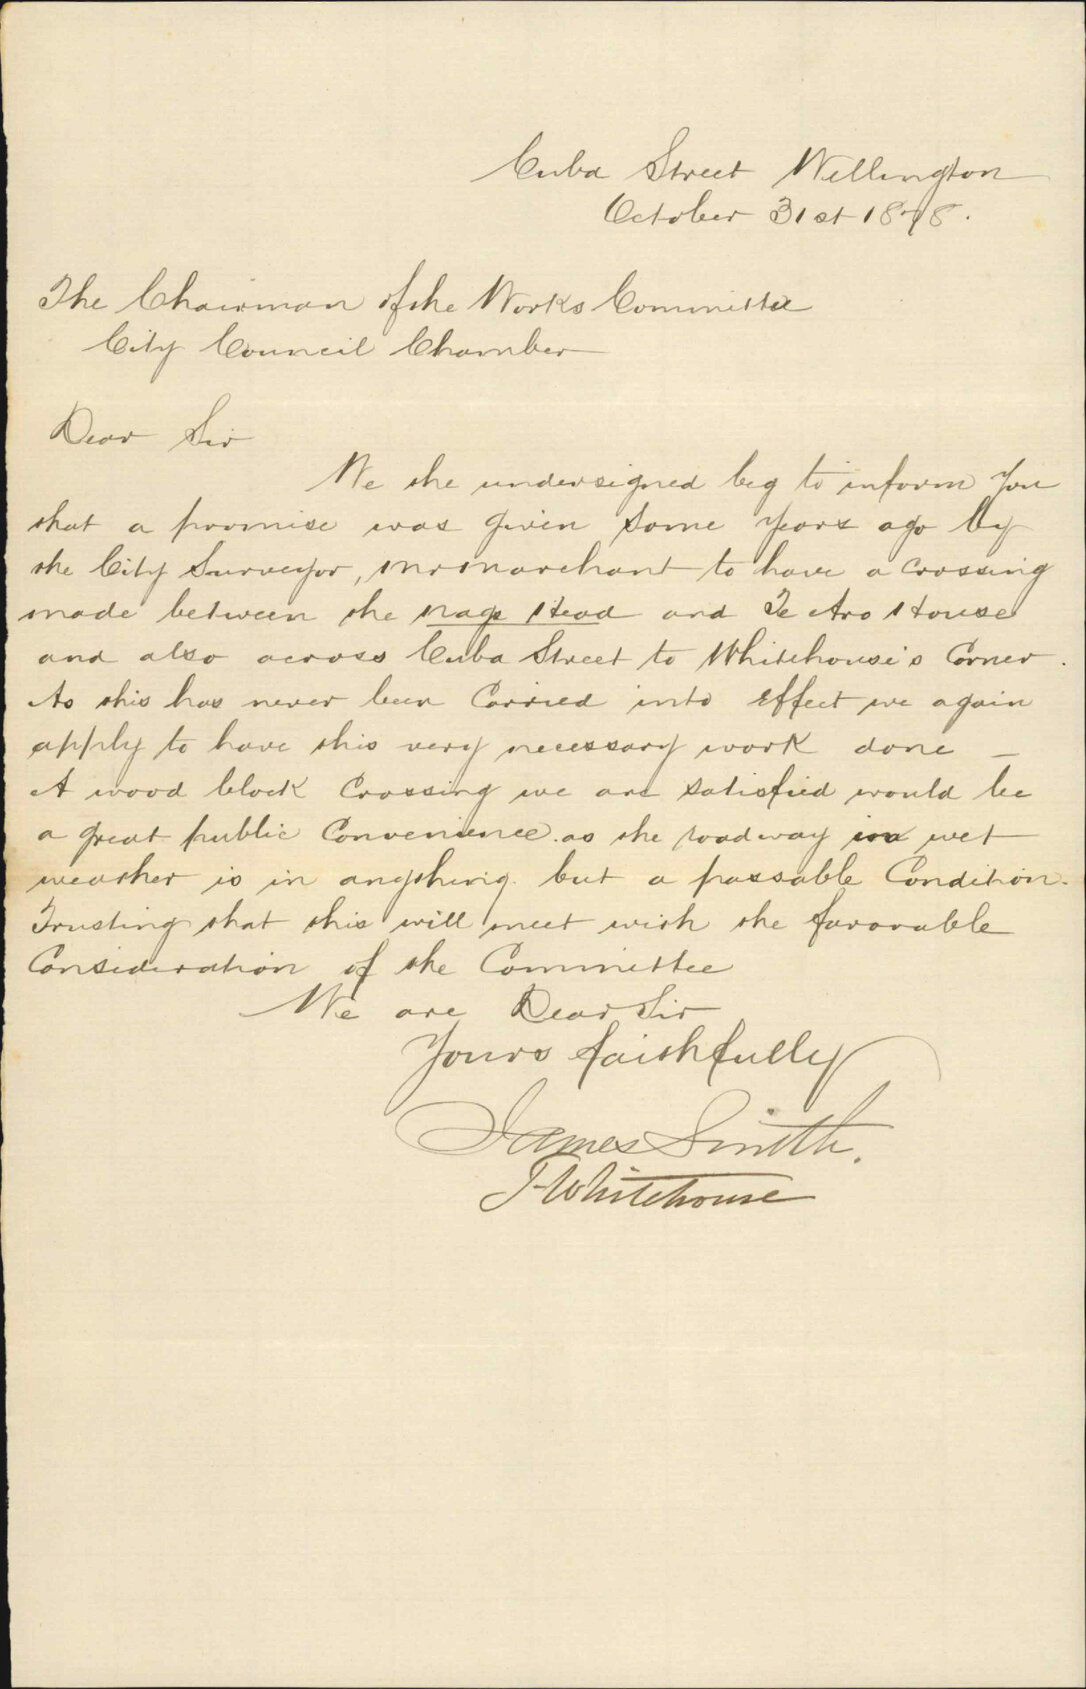 Cuba Street Wellington
October 31st 1878.
The Chairman of the Works Committee
City Council Chamber
Dear Sir
We the undersigned beg to inform you
that a promise was given some years ago by
the City Surveyor, Mr Marchant to have a crossing
made between the Nags Head and Te Aro House
and also across Cuba Street to Whitehouse's Corner.
As this has never been Carried into effect we again
apply to have this very necessary work done —
A wood block Crossing we are satisfied would be
a great public Convenience. as the roadway in wet
weather is in anything but a passable Condition.
Trusting that this will meet with the favorable
Consideration of the Committee
We are Dear Sir
Yours faithfully
James Smith.
J Whitehouse